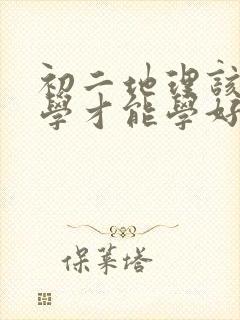 初二地理該
學才能學好
保萊塔